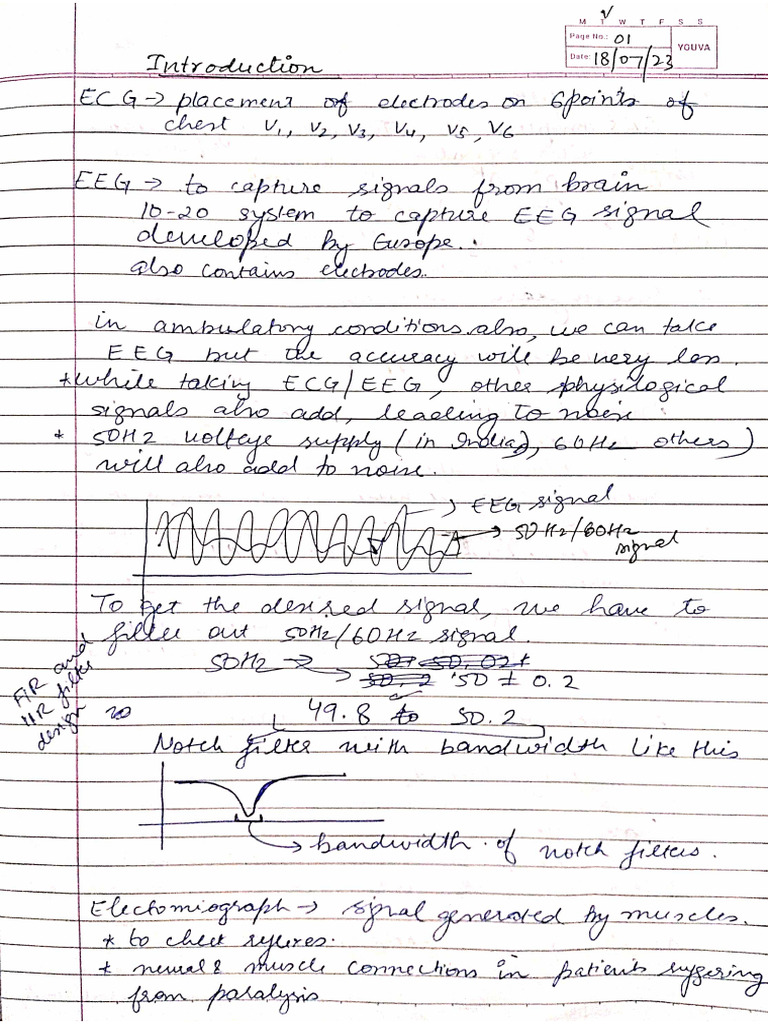 M T W T F S S
Page No.: 01
Date: 18/07/23
YOUVA
Introduction
ECG → placement of electrodes on 6 points of
chest V1, V2, V3, V4, V5, V6
EEG → to capture signals from brain
10-20 system to capture EEG signal
developed by Europe..
also contains electrodes.
in ambulatory conditions also, we can take
EEG but the accuracy will be very less.
* while taking ECG/EEG, other physilogical
signals also add, leading to noise
* 50Hz voltage supply (in India), 60Hz others)
will also add to noise.
→ EEG signal
→ 50Hz/60Hz
signal
To get the desired signal, we have to
filter out 50Hz/60Hz signal.
50Hz →
→ 50 ± 0.2
49.8 to 50.2
FIR and
IIR filter
design
Notch filter with bandwidth like this
→ bandwidth of notch filters.
Electomiograph → signal generated by muscles.
* to check
* neural & muscle connections in patients suffering
from paralysis